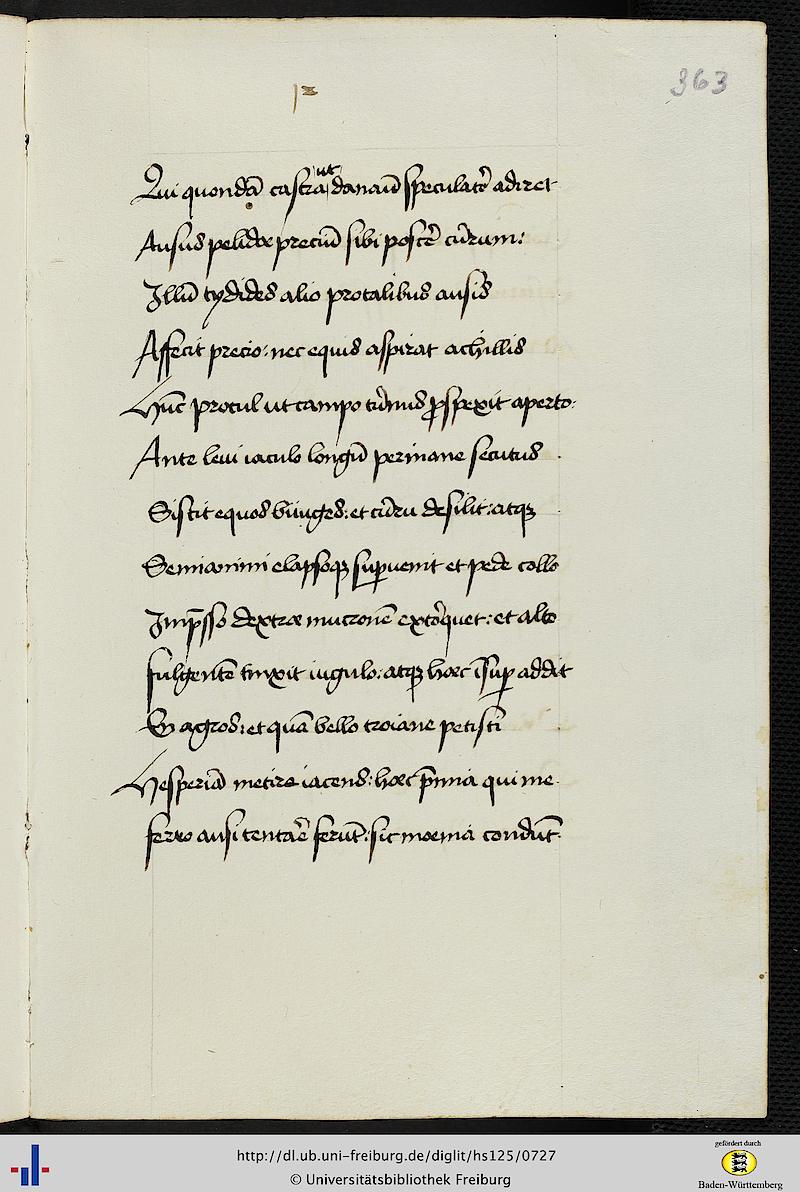 12
363
Qui quondā castra ut danaū speculatꝛ̄ adiret
Ausus pelidæ preciū sibi poscꝛ̄ cūrum:
Illū tydides alio protalibus ausis
Affecit precio: nec equis aspirat achillis
Hūc procul ut campo tūrnus ꝓspexit aperto:
Ante leui iaculo longū perinane secutus
Sistit equos biiuges: et cūrru desilit: atqꝫ
Semianimi elapsoqꝫ suꝑuenit et pede collo
Imp̄sso dextræ mucronē extōrquet: et alto
fulgentē tinxit iugulo: atqꝫ hæc īsuꝑ addit
En agros: et quā bello troiane petisti
Hesperiā metire iacens: hæc p̄mia qui me
ferro ausi tentaꝛ̄e ferūt: sic moenia condūt
http://dl.ub.uni-freiburg.de/diglit/hs125/0727
© Universitätsbibliothek Freiburg
gefördert durch
Baden-Württemberg